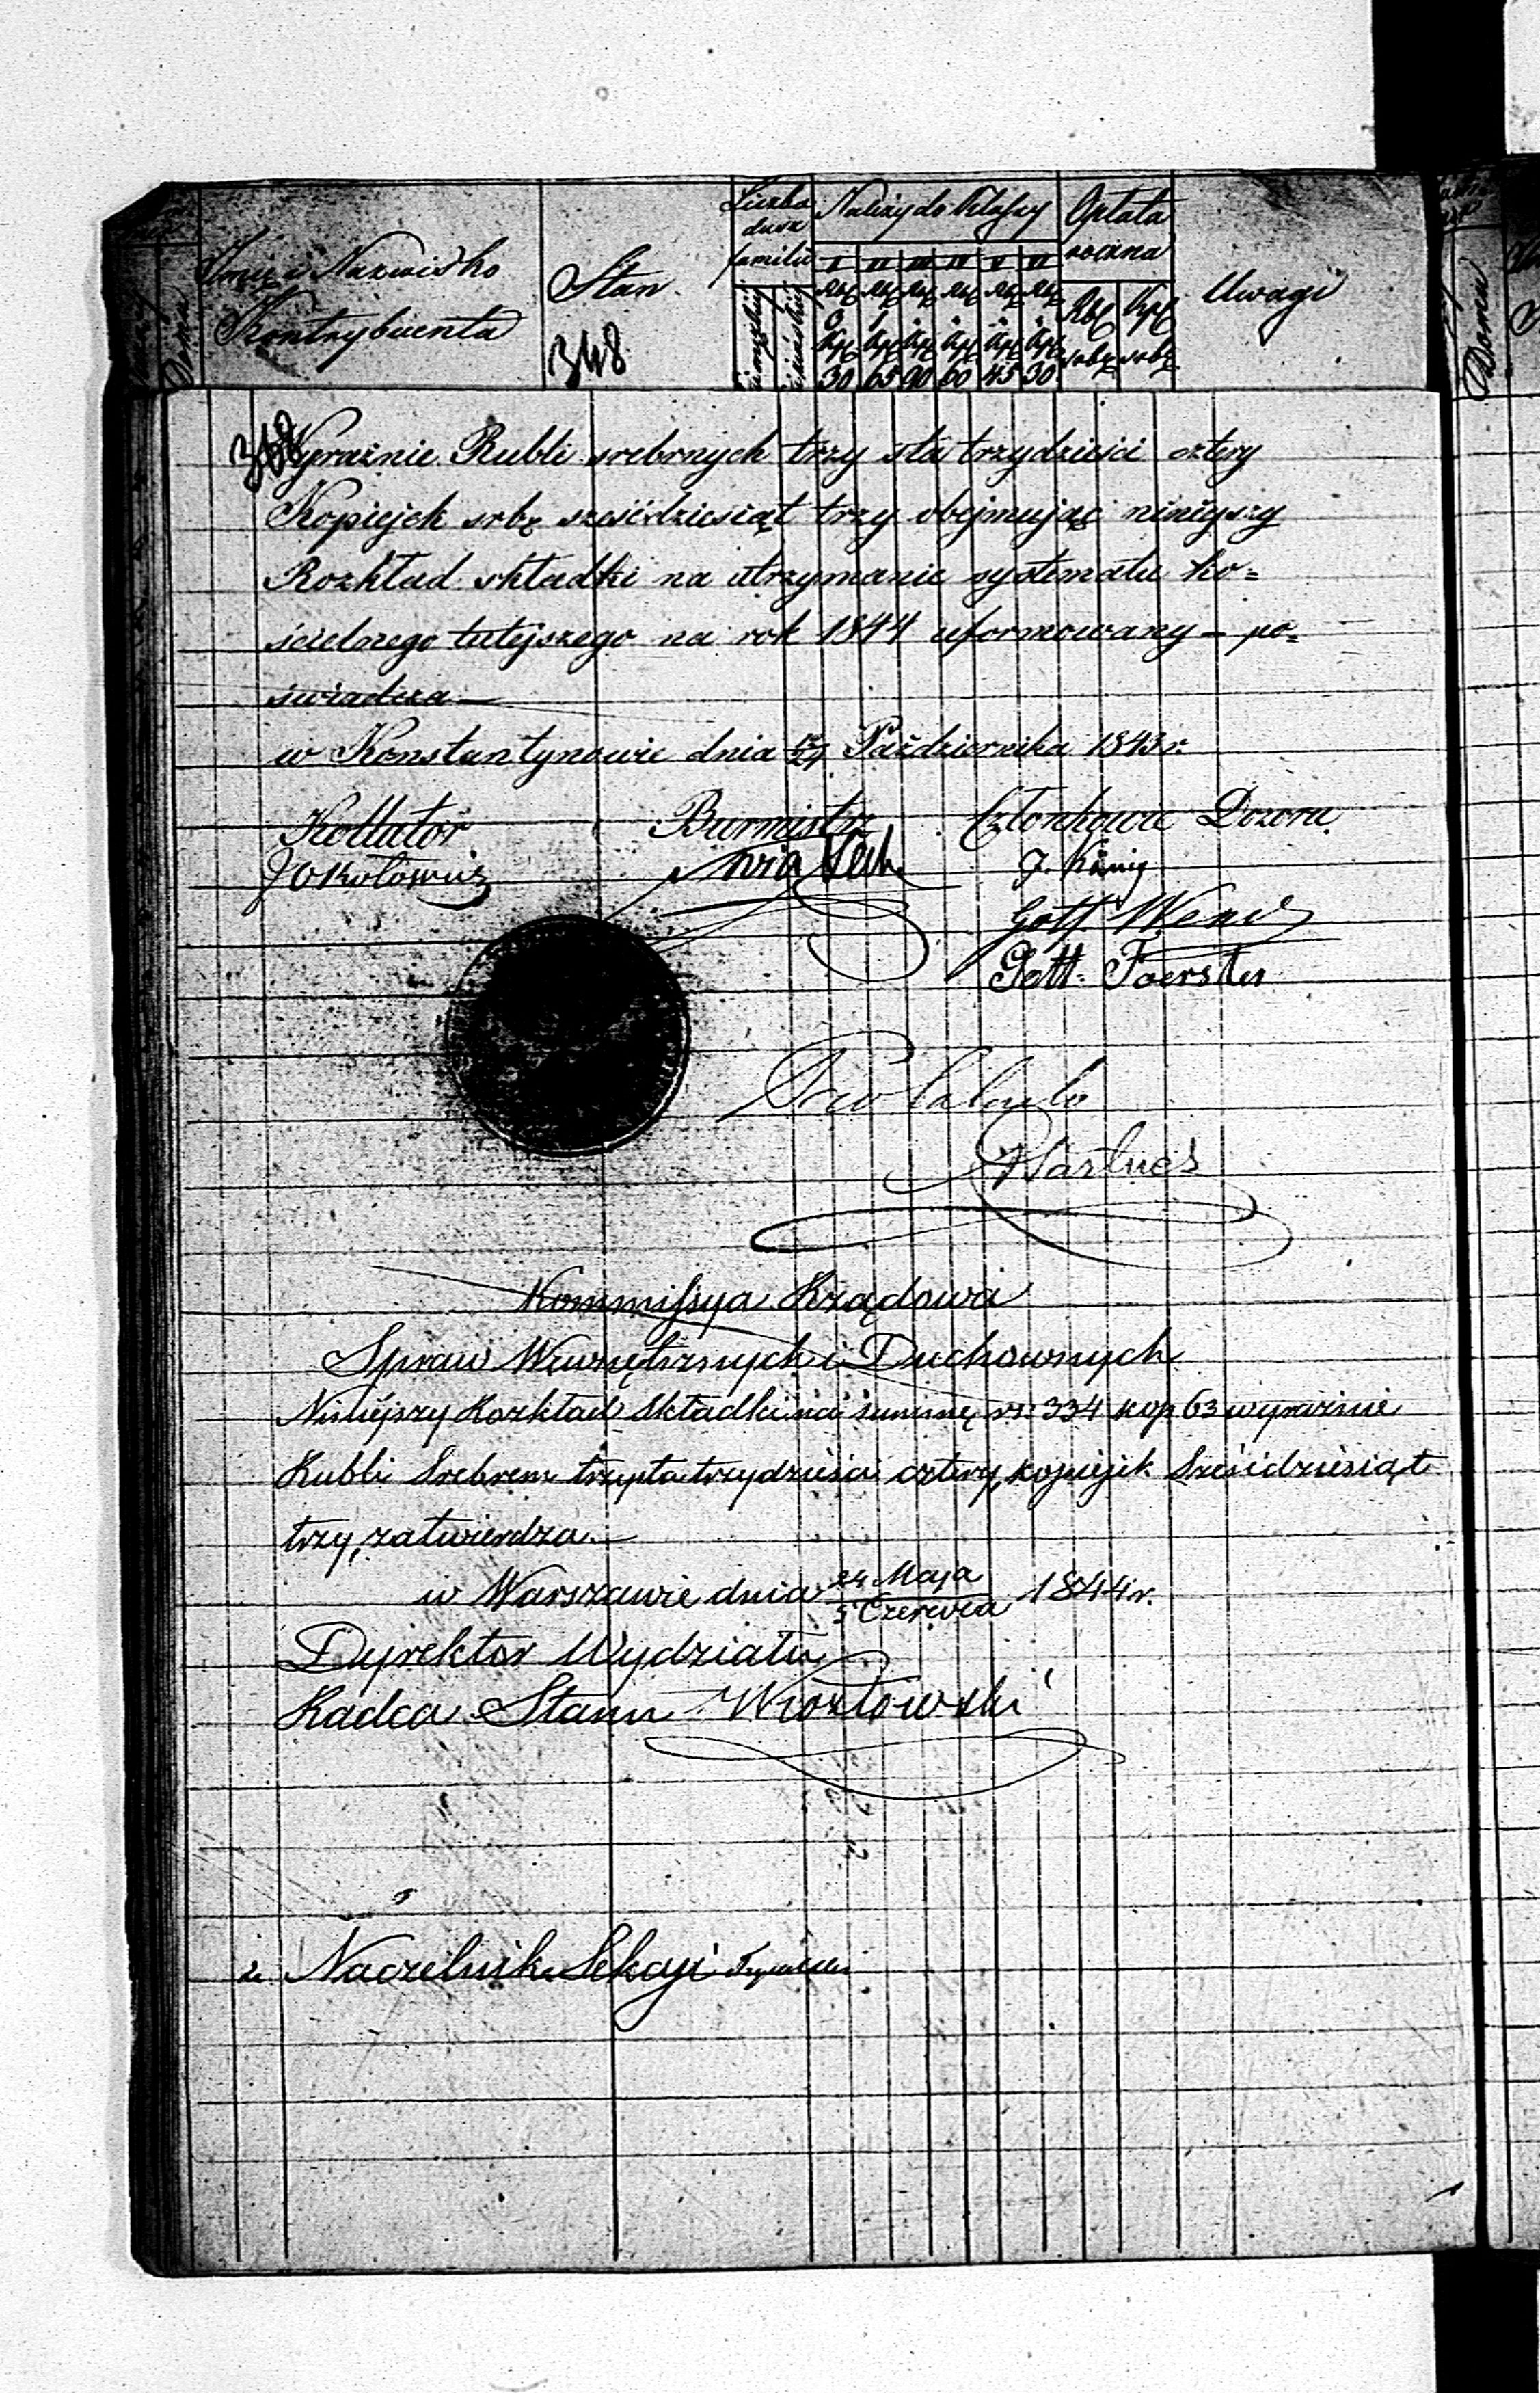 Imię i Nazwisko
Kontrybuenta
Stan
348
Liczba
dusz
familii
Należy do Klassy
I II III IV V VI
30 65 90 60 45 30
Opłata
roczna
Rbl Kpk
srbr srbr
Uwagi
Dom
348
Wyraźnie Rubli srebrnych trzy sta trzydzieści cztery
Kopiejek srbr. sześćdziesiąt trzy obejmując niniejszy
Rozkład składki na utrzymanie systematu ko=
ścielnego tutejszego na rok 1844 uformowany – po=
świadcza —
w Konstantynowie dnia 12/24 Października 1843 r.
Kollator Burmistrz Członkowie Dozoru
J. König
Gottf. Wenc
Gott. Foerster
Pro Calculo
Kommissya Rządowa
Spraw Wewnętrznych i Duchownych
Niniejszy Rozkład Składki na summę rs: 334 kop 63 wyraźnie
Rubli Srebrem trzysta trzydzieści cztery, kopiejek Sześćdziesiąt
trzy, zatwierdza. —
w Warszawie dnia 24 Maja / 5 Czerwca 1844 r.
Dyrektor Wydziału
Radca Stanu
Naczelnik Sekcyi